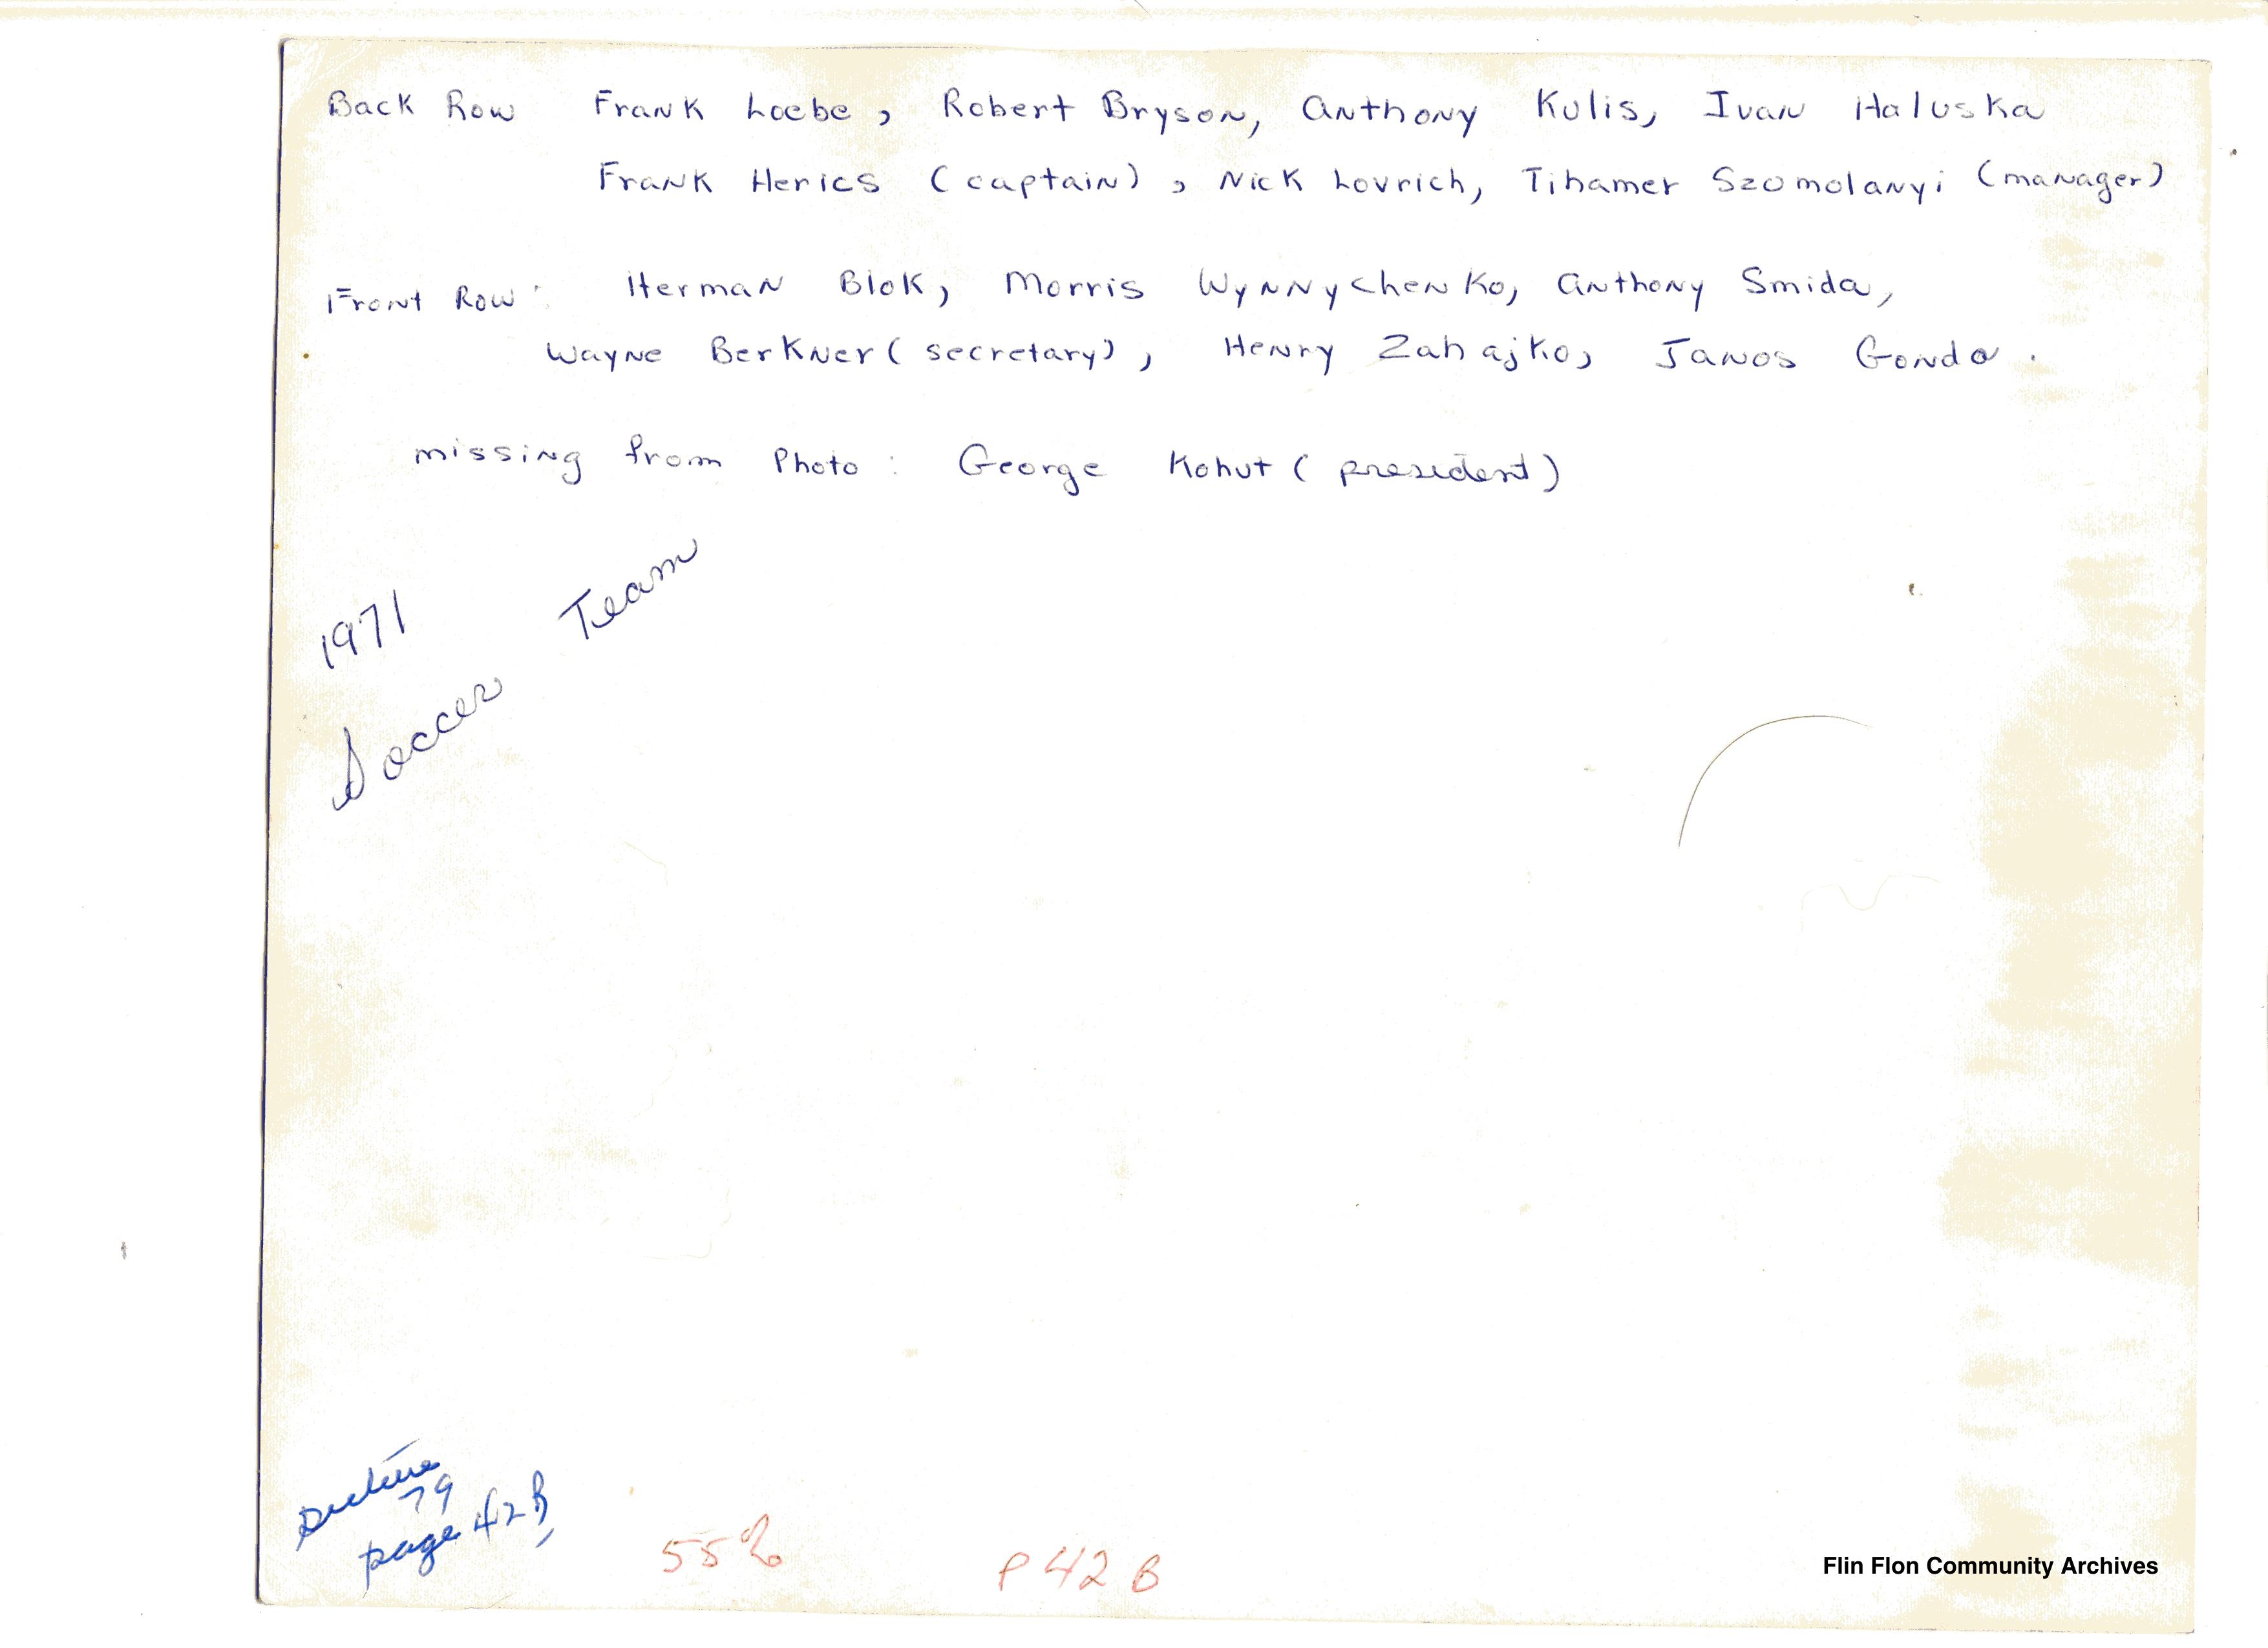 Back Row Frank Loebe, Robert Bryson, Anthony Kulis, Ivan Haluska
Frank Herics (captain), Nick Lovrich, Tihamer Szomolanyi (manager)
Front Row: Herman Blok, Morris Wynnychenko, Anthony Smida,
Wayne Berkner (secretary), Henry Zahajko, Janos Gonda.
missing from Photo: George Kohut (president)
1971
Soccer Team
picture
79
page 42B
55%
P 42 B
Flin Flon Community Archives